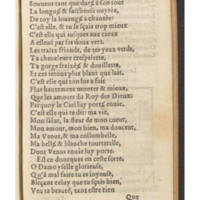 Souuent tant que dura son tout
La longue & fascheuse
De toy la louange a chanter:
C'est elle, & tu le sçais trop mieux
C'est elle qui
A esleué par ses doux vers
Les traits friands, de tes yeux verds,
Ta cheuelure crespelette,
Ta gorge & douillette,
Et ton tetin plus blanc que lait,
C'est elle, qui ton los a fait
Plus hautement monter & mieux,
Que les amours du Roy des Dieux:
Parquoy le Ciel luy porte enuie.
C'est elle qui te dit: ma vie,
Mon salut, la fleur de mon cueur,
Mon amour, mon bien, ma douceur,
Ma Venus, & ma toute belle,
Ma belle & blanche tourterelle,
Dont Venus enuie luy porte.
Est ce donques en ceste sorte,
O Dame vieille glorieuse,
Qu'a mal faire tu es ioyeuse,
Bleçant celuy que tu sçais bien,
Veu ta beauté, tant estre tien
Que